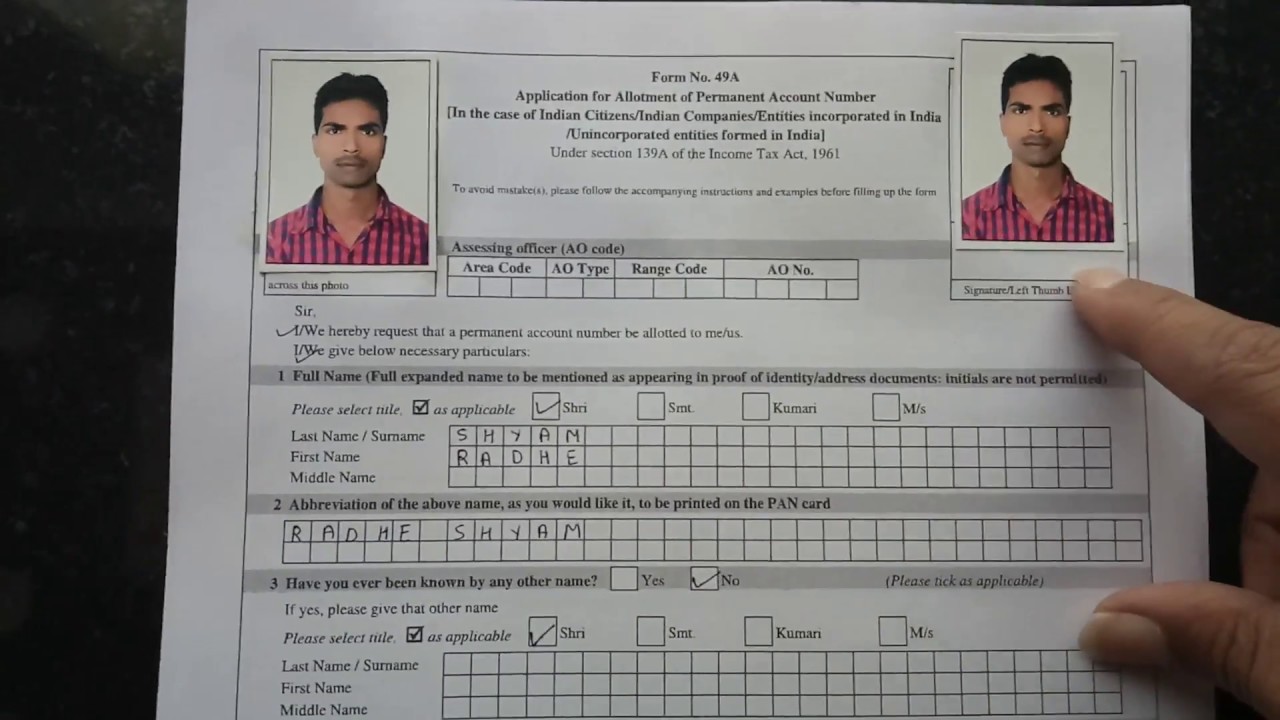 Form No. 49A
Application for Allotment of Permanent Account Number
[In the case of Indian Citizens/Indian Companies/Entities incorporated in India
/Unincorporated entities formed in India]
Under section 139A of the Income Tax Act, 1961
To avoid mistake(s), please follow the accompanying instructions and examples before filling up the form
Assessing officer (AO code)
Area Code AO Type Range Code AO No.
across this photo
Signature/Left Thumb
Sir,
I/We hereby request that a permanent account number be allotted to me/us.
I/We give below necessary particulars:
1 Full Name (Full expanded name to be mentioned as appearing in proof of identity/address documents: initials are not permitted)
Please select title, ☑ as applicable ✓ Shri Smt. Kumari M/s
Last Name / Surname SHYAM
First Name RADHE
Middle Name
2 Abbreviation of the above name, as you would like it, to be printed on the PAN card
RADHE SHYAM
3 Have you ever been known by any other name? Yes ✓ No (Please tick as applicable)
If yes, please give that other name
Please select title, ☑ as applicable ✓ Shri Smt. Kumari M/s
Last Name / Surname
First Name
Middle Name